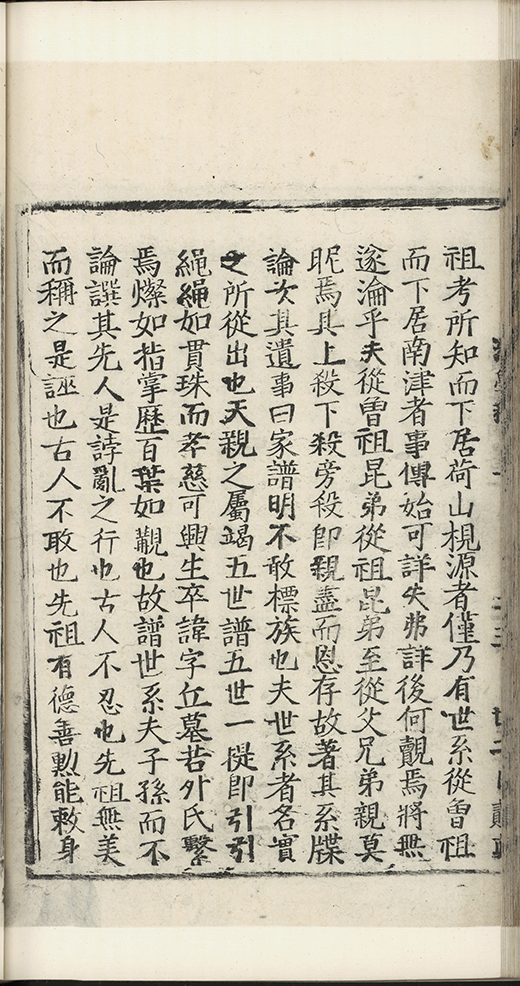 祖考所知而下居荷山梘源者僅乃有世系從曾祖
而下居南津者事傳始可詳失弗詳後何覿焉將無
遂淪乎夫從曾祖昆弟從祖昆弟至從父兄弟親莫
昵焉其上殺下殺旁殺即親盡而恩存故著其系牒
論次其遺事曰家譜明不敢標族也夫世系者名實
之所從出也天親之屬竭五世譜五世一提即引引
繩繩如貫珠而孝慈可興生卒諱字丘墓若外氏繫
焉燦如指掌歷百葉如覯也故譜世系夫子孫而不
論譔其先人是誖亂之行也古人不忍也先祖無美
而稱之是誣也古人不敢也先祖有德善勲能敕身